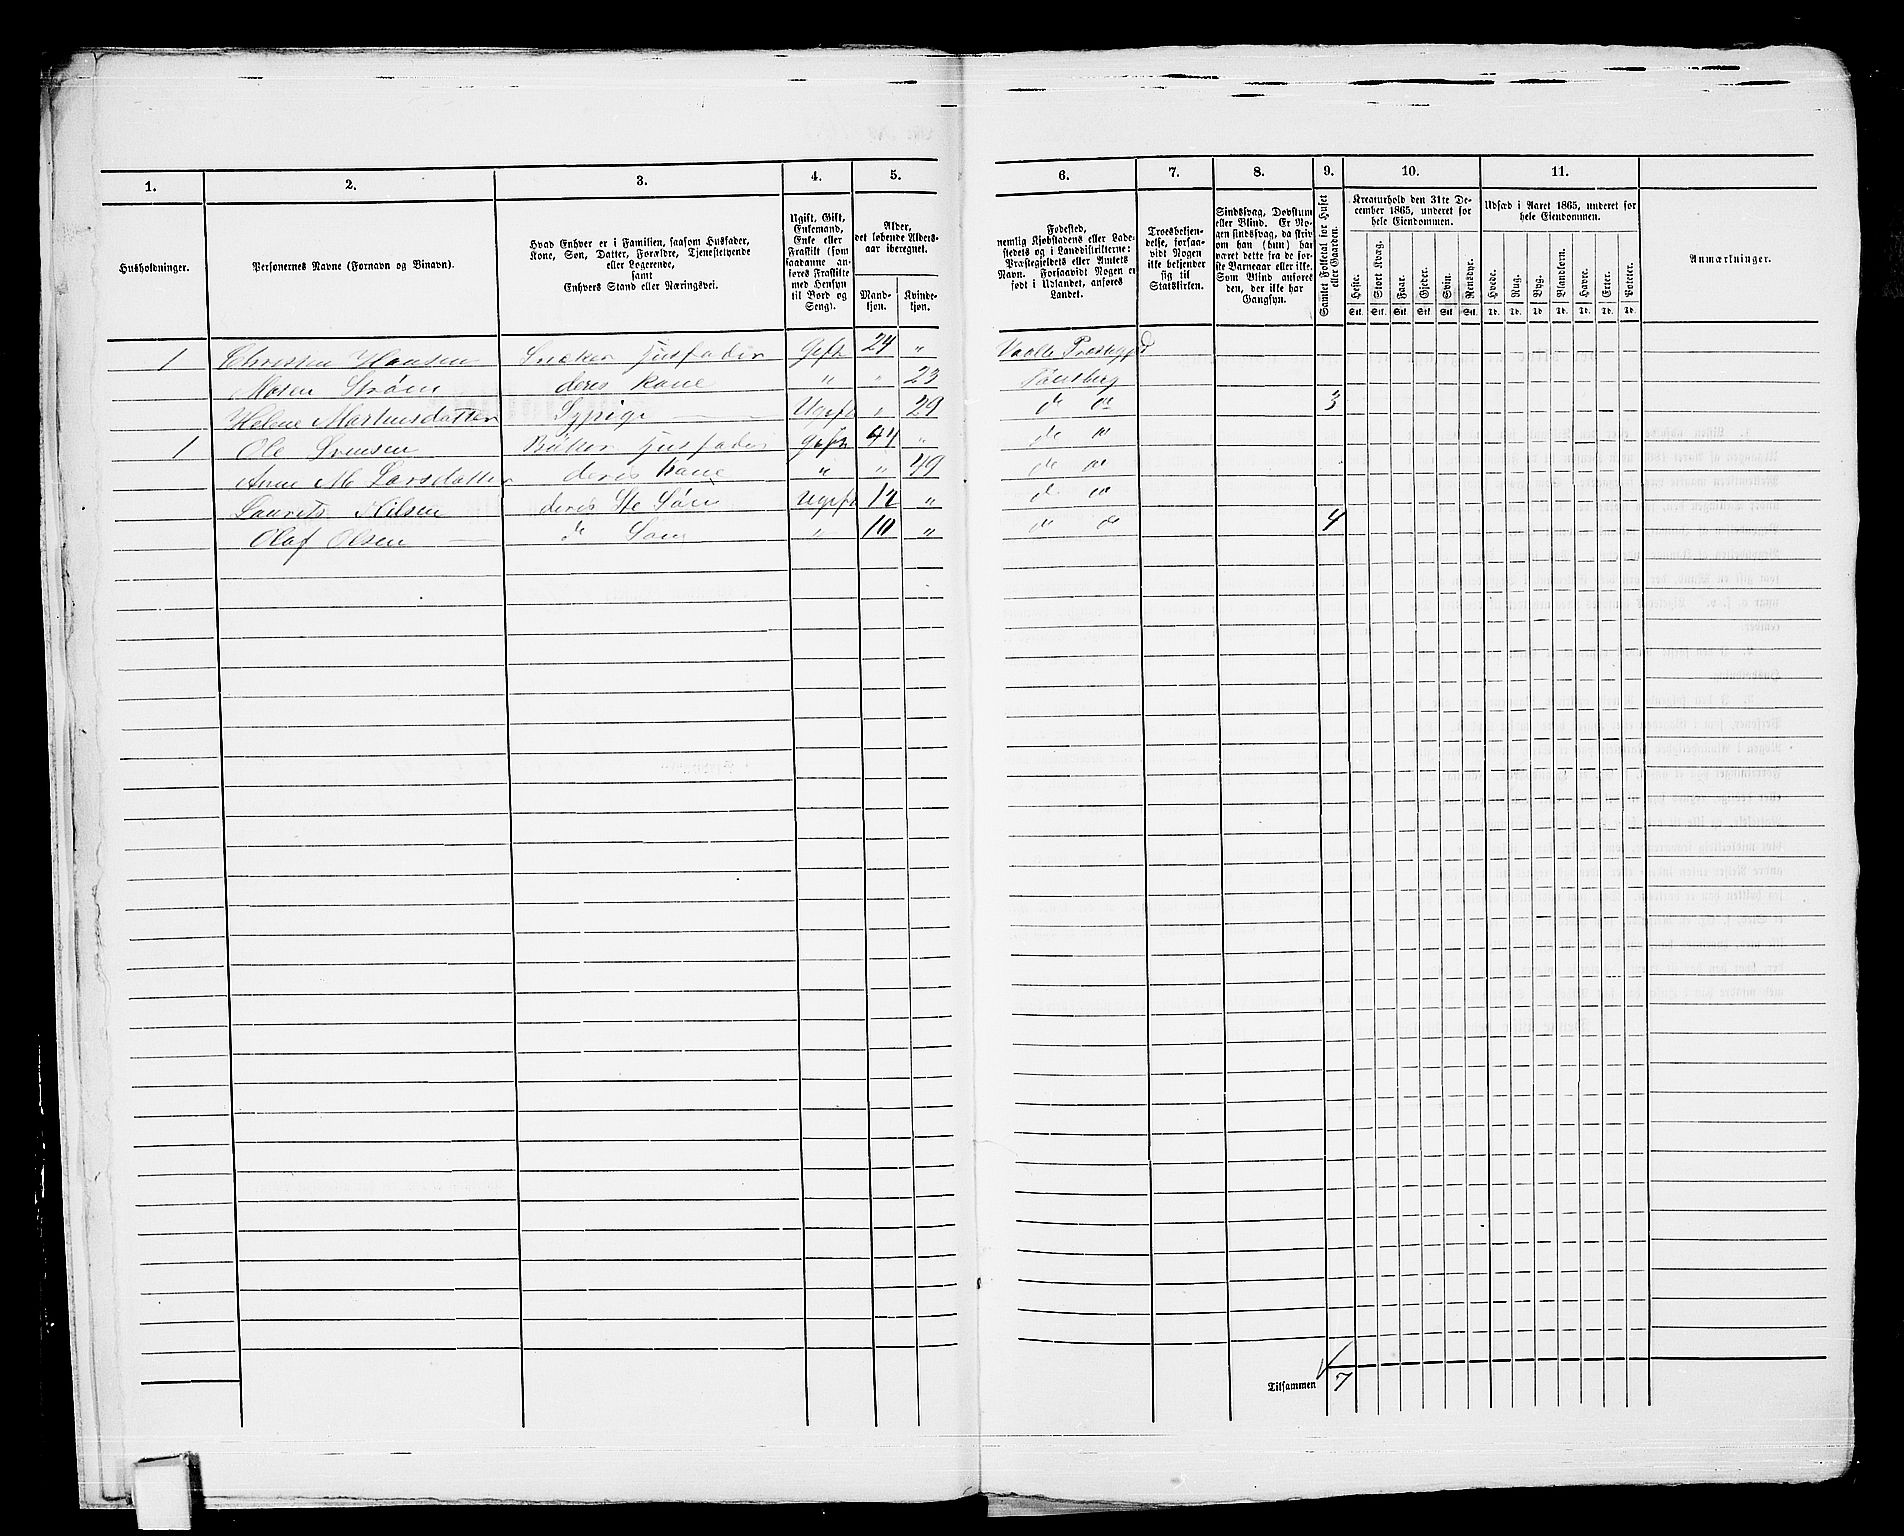 1. 2. 3. 4. 5. 6. 7. 8. 9. 10. 11.
Husholdninger.
Personernes Navne (Fornavn og Binavn).
Hvad Enhver er i Familien, saasom Husfader,
Kone, Søn, Datter, Forældre, Tjenestetyende
eller Logerende,
samt
Enhvers Stand eller Næringsvei.
Ugift, Gift,
Enkemand,
Enke eller
Fraskilt (som
saadanne an-
føres Fraskilte
med Hensyn
til Bord og
Seng).
Alder,
det løbende Alders-
aar iberegnet.
Mand-
kjøn.
Kvinde-
kjøn.
Fødested,
nemlig Kjøbstadens eller Lade-
stedets og i Landdistrikterne:
Præstegjeldets eller Amtets
Navn. Forsaavidt Nogen er
født i Udlandet, anføres
Landet.
Troesbekjen-
delse, forsaa-
vidt Nogen
ikke bekjender
sig til
Statskirken.
Sindssvag, Døvstum
eller Blind. Er No-
gen sindssvag, da skriv
om han (hun) har
været dette fra de før-
ste Barneaar eller ikke.
Som Blind anføres
den, der ikke har
Gangsyn.
Samlet Folketal for Huset
eller Gaarden.
Kreaturhold den 31te De-
cember 1865, underet for
hele Eiendommen.
Heste.
Stort Kvæg.
Faar.
Gjeder.
Svin.
Rensdyr.
Stk. Stk. Stk. Stk. Stk. Stk.
Udsæd i Aaret 1865, underet for
hele Eiendommen.
Hvede.
Rug.
Byg.
Blandkorn.
Havre.
Erter.
Poteter.
Td. Td. Td. Td. Td. Td. Td.
Anmærkninger.
1 Christen Hansen Snedker Husfader Gift 24 "
Maren Strøm deres Kone " " 23 Tønsberg
Helene Mathisdatter Sypige Ugift " 29 do do 3
1 Ole Svensen Husfader Gift 44 " do do
Anne M Larsdatter deres Kone " " 49 do do
Laurits Nilsen deres Ste Søn Ugift 12 " do do
Olaf Olsen do Søn " 10 " do do 4
Tilsammen 7